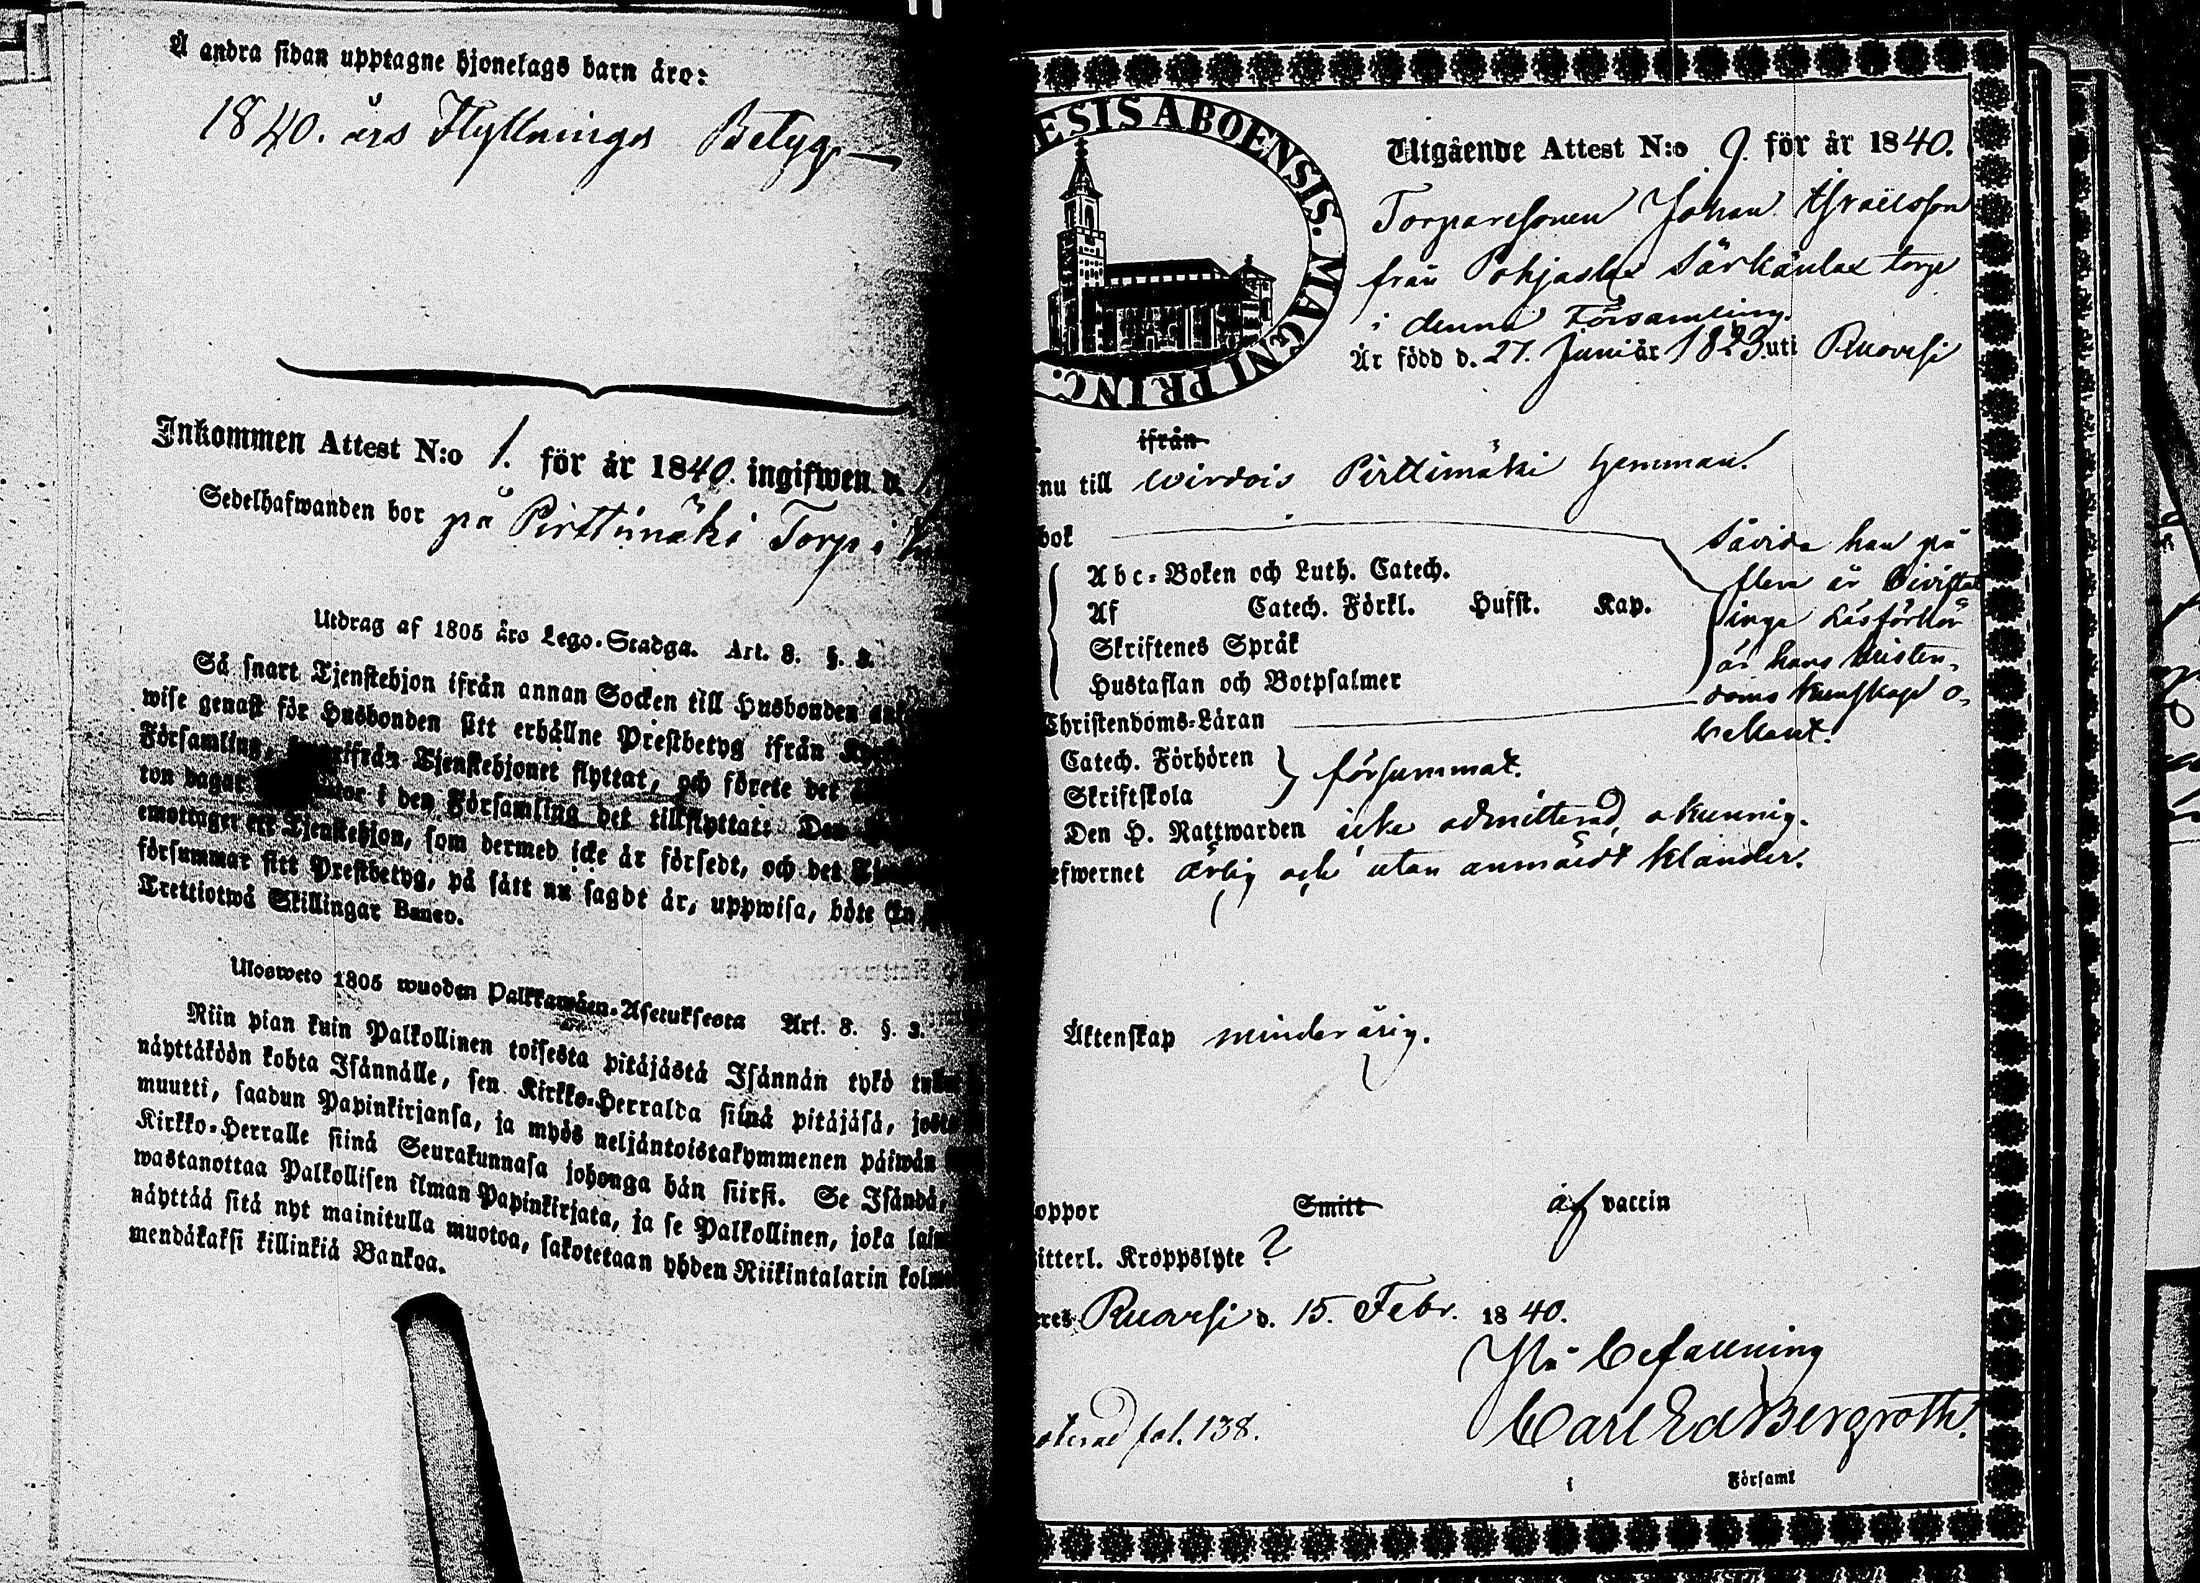 Å andra sidan upptagne hjonelags barn äro:
1840. års Flyttnings Betyg
Inkommen Attest N:o 1. för år 1840. ingifwen d.
Sedelhafwanden bor på Pirttimäki Torp i
Utdrag af 1805 års Lego-Stadga. Art. 8. §. 3.
Så snart Tjenstehjon ifrån annan Socken till Husbonden
wise genast för Husbonden sitt erhållne Prestbetyg ifrån
Församling, hwarifrån Tjenstehjonet flyttat, och förete det
ton dagar i den Församling det tillflyttat: Den
emottager ett Tjenstehjon, som dermed icke är försedt, och det
försummar sitt Prestbetyg, på sätt nu sagdt är, uppwisa, böte En
Trettiotwå Skillingar Banco.
Ulosweto 1805 wuoden Palkkawäen-Asetuksesta Art. 8. §. 3.
Niin pian kuin Palkollinen toisesta pitäjästä Isännän tykö
näyttäköön kohta Isännälle, sen Kirkko-Herralda siinä pitäjäsä, josta
muutti, saadun Papinkirjansa, ja myös neljäntoistakymmenen päiwän
Kirkko-Herralle siinä Seurakunnasa johonga hän siirsi. Se Isändä,
wastanottaa Palkollisen ilman Papinkirjata, ja se Palkollinen, joka
näyttää sitä nyt mainitulla muotoa, sakotetaan yhden Riikintalarin
mendäkaksi killinkiä Bankoa.
ESIS ABOENSIS. MAGNI PRINC.
Utgående Attest N:o 9. för år 1840.
Torparesonen Johan Israelsson
från Pohjaslax Särkänlax torp
i denna Församling.
Är född d. 27. Juni år 1823. uti Ruovesi
ifrån
nu till Wirdois Pirttimäki hemman.
bok
Abc-Boken och Luth. Catech.
Af Catech. Förkl. Husst. Kap.
Skriftenes Språk
Hustaflan och Botpsalmer
såvida han på
flera år bivistat
inga Läsförhör
är hans kristen-
doms kunskap o-
bekant.
Christendoms-Läran
Catech. Förhören
Skriftskola
försummat.
Den H. Nattwarden icke admitterad, okunnig.
efwernet ärlig och utan anmäldt klander.
Äktenskap minderårig.
oppor Smitt af vaccin
itterl. Kroppslyte ?
eres Ruovesi d. 15. Febr. 1840.
På befallning
Carl Ed Bergroth.
oterad fol. 138.
i Församl